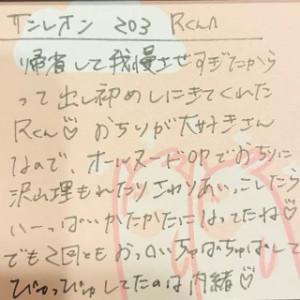 T シレオン 203 Rくん
帰省して我慢させすぎたから
って出し初めしにきてくれた
Rくん♡ おちりが大好きさん
なので、オールヌードOPでおちりに
沢山埋もれたりさわりあいっこしたら
いーっぱいかたかたになってたね♡
でも2回ともおっぱいちゅぱちゅぱして
ぴゅっぴゅしてたのは内緒♡